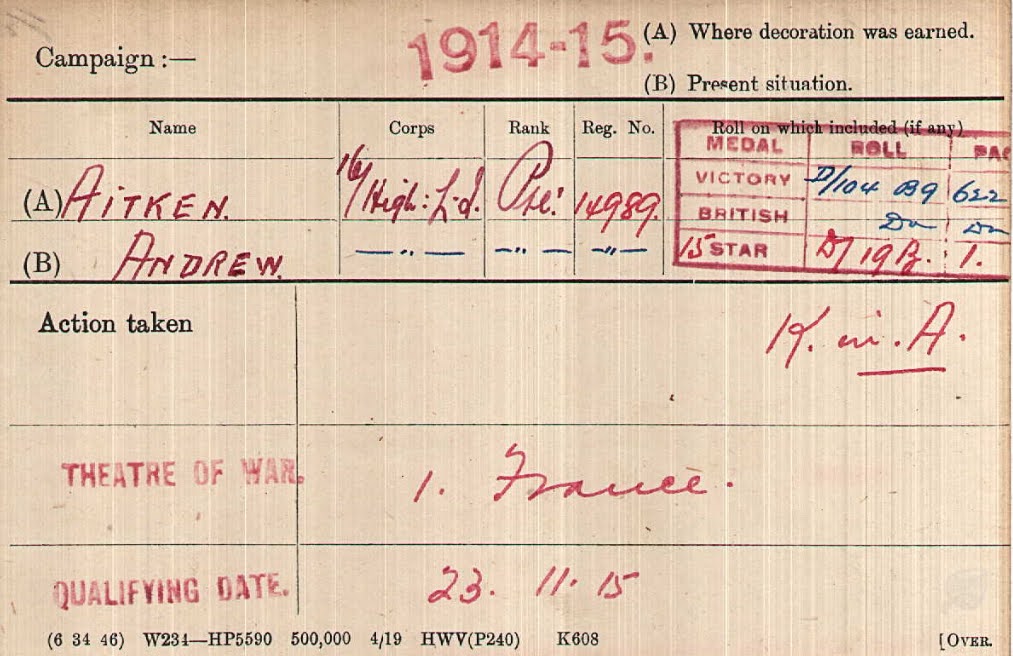 Campaign :— 1914-15. (A) Where decoration was earned.
(B) Present situation.
Name Corps Rank Reg. No. Roll on which included (if any)
MEDAL ROLL PAG
(A) AITKEN. 16/High: L.I. Pte. 14989. VICTORY D/104 B9 622
BRITISH Do Do
(B) ANDREW. —"— —"— —"— 15 STAR D/19B. 1.
Action taken K. in. A.
THEATRE OF WAR. 1. France.
QUALIFYING DATE. 23. 11. 15
(6 34 46) W234—HP5590 500,000 4/19 HWV(P240) K608 [OVER.